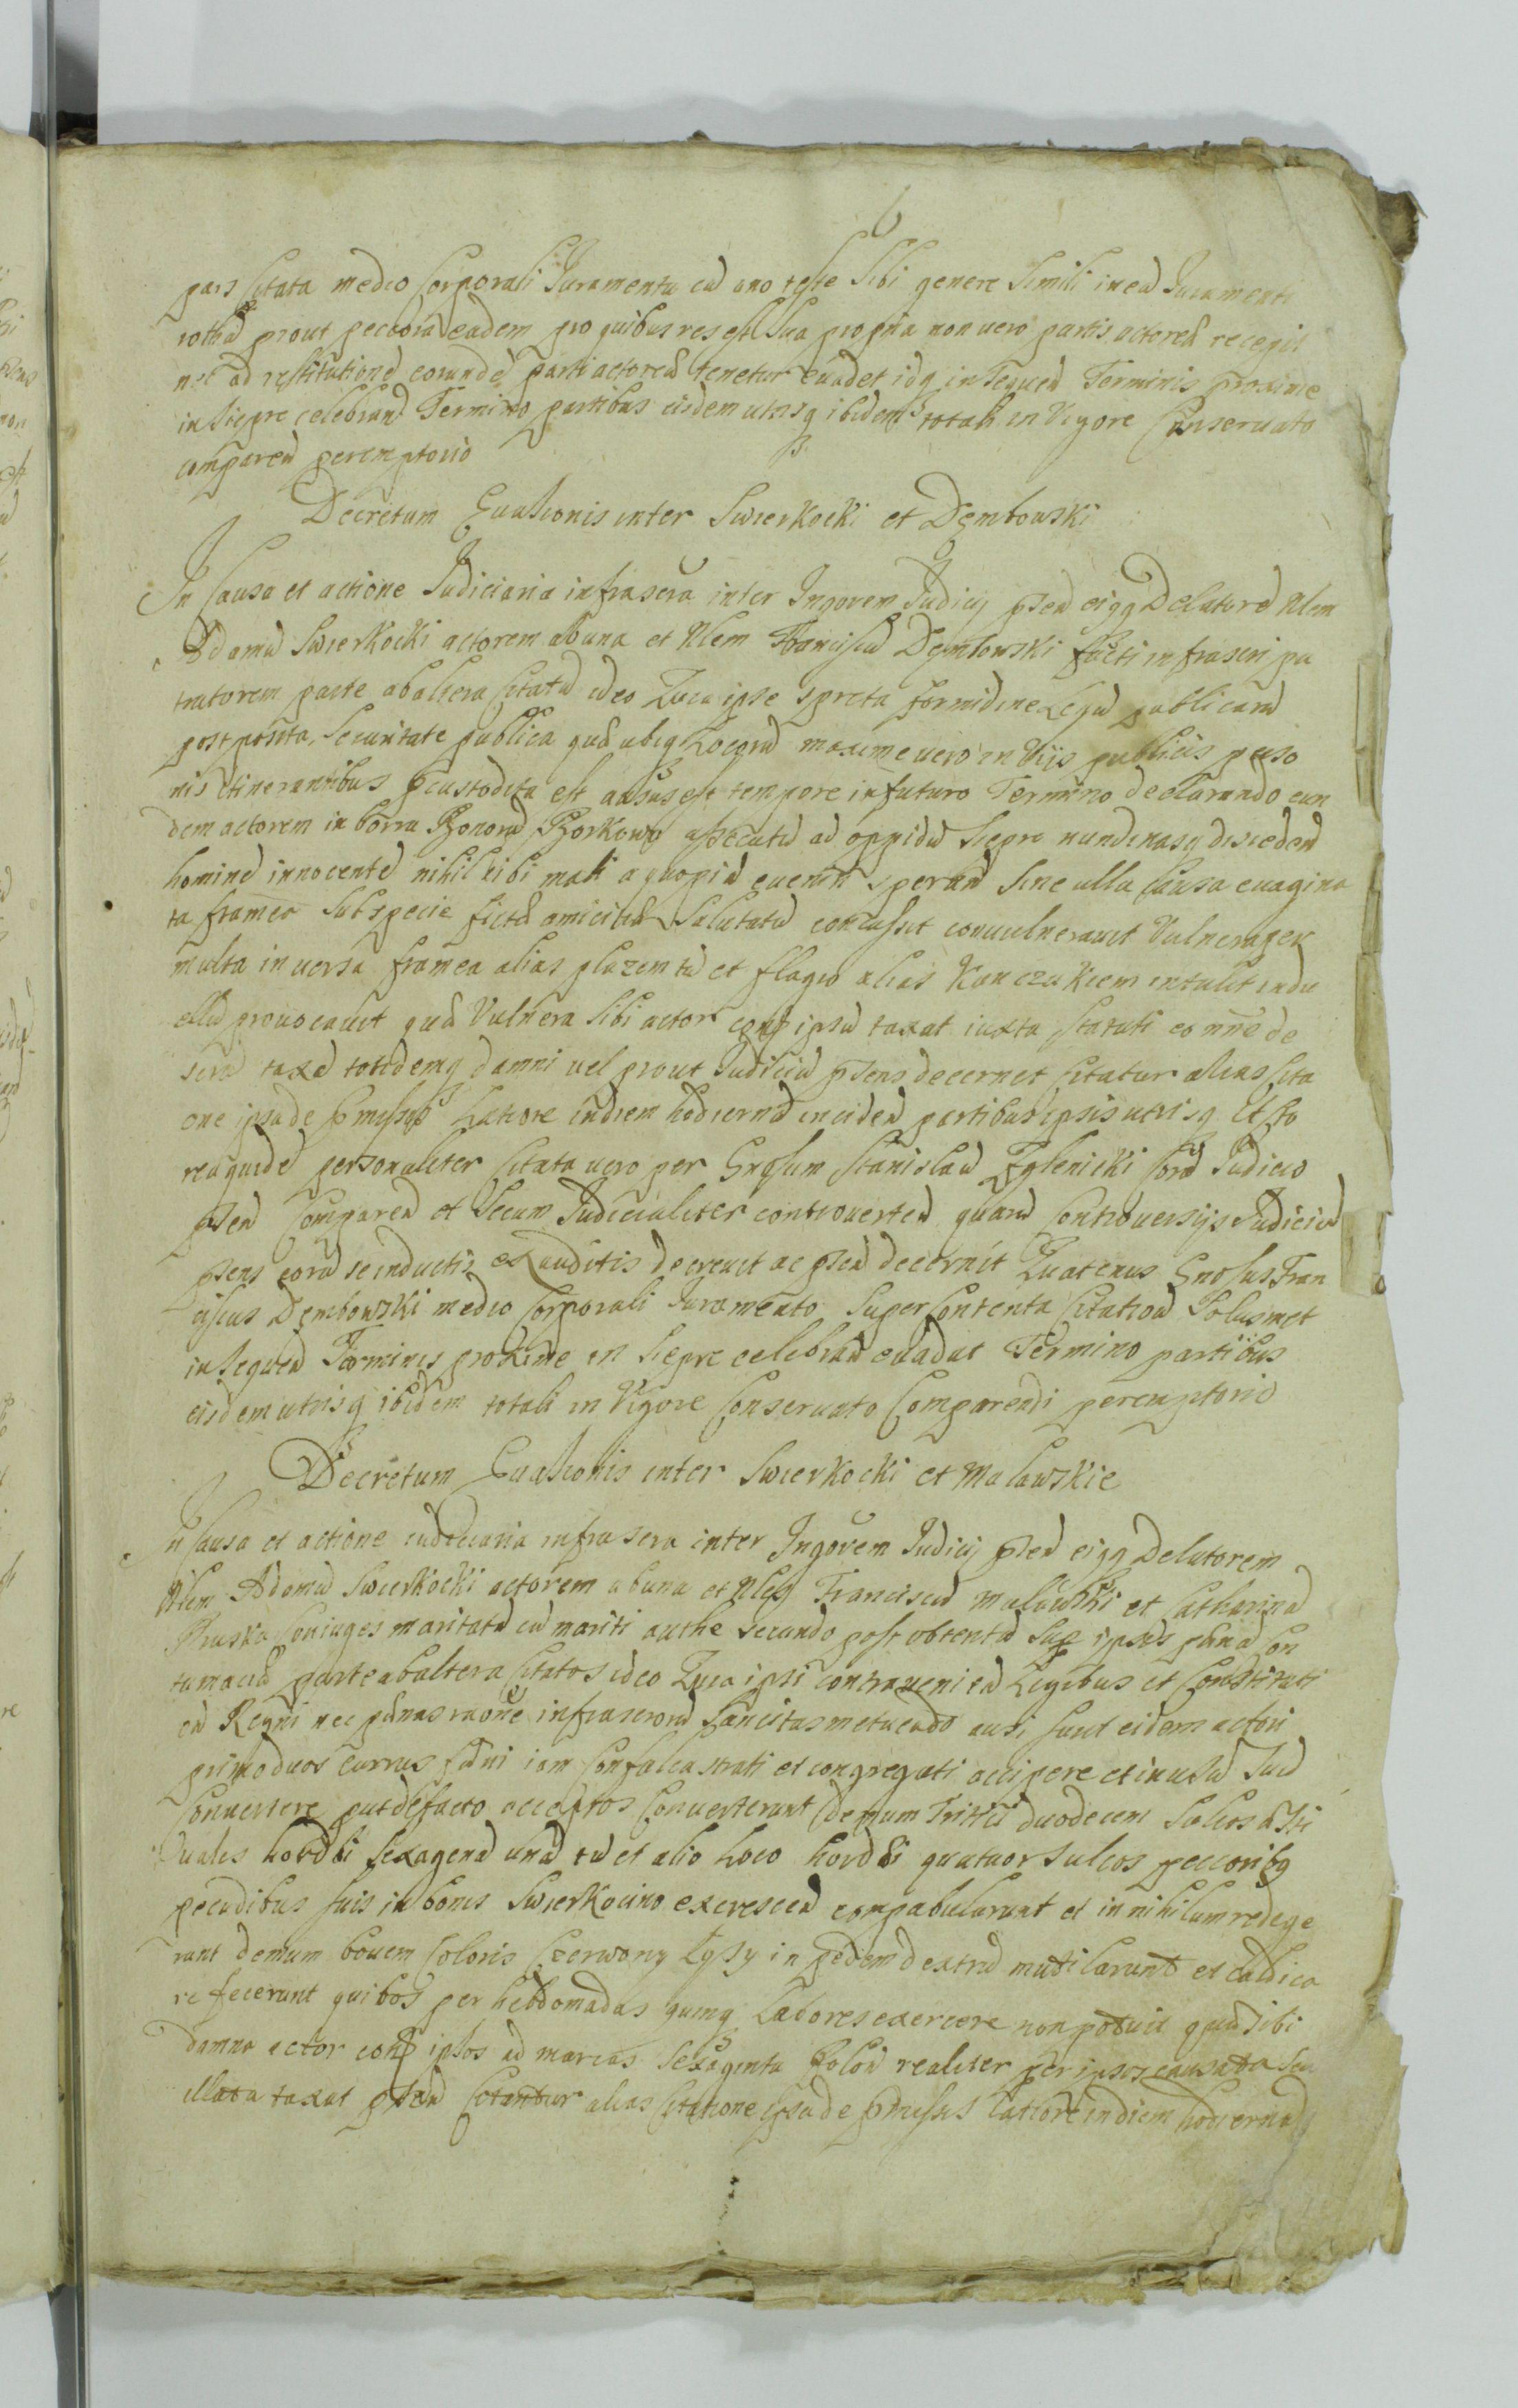 6
pars Citata medio Corporali Juramento cu uno teste Sibi genere Simili in ea Juramenti
rotha prout peccora eadem pro quibus res est Sua propria non vero partis actorea recepit
nec ad restitutione eorunde parti actorea tenetur evadet idq in Sequen Terminis proxime
in Siepre celebran Termino partibus eisdem utrisq ibidem totali in Vigore Conservato
comparen peremptorio
Decretum Evasionis inter Swierkocki et Dembowski
In Causa et actione Judiciaria infrascra inter Ingorem Judicij psen eiqq Delatore Nlem
Adamu Swierkocki actorem ab una et Nlem Franciscu Dembowski facti infrascri pa
tratorem parte ab altera Citatu ideo Quia ipse spreta formidine Legu publicaru
postposita Securitate publica qua ubiq Locoru maxime vero in Viis publicis perso
nis itinerantibus pcustodita est ausus est tempore in futuro Termino declarando eun
dem actorem in borra Bonoru Borkowo assecutu ad oppidu Siepre nundinasq disceden
homine innocente nihil sibi mali a quopia evenir speran Sine ulla Causa evagina
ta framea Sub specie ficta amicitia Salutatu concussit convulneravit Vulneraqer
multa inversa framea alias plazem tu et flagro alias Kanczukiem intulit indu
ellu provocavit qua Vulnera Sibi actor cont ipsu taxat iuxta Statuti eo nne de
scra taxa totidemq damni vel prout Judiciu psens decernet Citatur alias Cita
one ipsa de pmissis Latiore in diem hodierna inciden partibus ipsis utrisq Acto
rea quide personaliter Citata vero per Gnosum Stanislau Zglenicki Cora Judicio
psen Comparen et Secum Judicialiter controverten quaru Controversijs Judiciu
psens cora se inductis exauditis decrevit ac psen decernit Quatenus Gnosus Fran
ciscus Dembowski medio Corporali Juramento Super Contenta Citation Solusmet
in Sequen Terminis proxime in Siepre celebran evadat Termino partibus
eisdem utrisq ibidem totali in Vigore Conservato Comparendi peremptorio
Decretum Evasionis inter Swierkocki et Malawskie
In Causa et actione iudiciaria infrascra inter Ingorem Judicij psen eiqq Delatorem
Nlem Adamu Swierkocki actorem ab una et Nles Franciscu Malawski et Catharina
Pruska Coniuges maritata cu mariti authe secundo post obtenta Sup ipsis pana Con
tumacia parte ab altera Citatos ideo Quia ipsi contravenien Legibus et Constituti
on Regni nec panas raone infrascroru Sancitas metuendo ausi Sunt eidem actori
primo duos currus faeni iam Confalcastrati et congregati accipere et in usu Suu
Convertere put de facto acceptos Converterunt demum Tritici duodecem Sulcos
hordei Sexagena una tu et alio Loco hordei quatuor Sulcos peccoribq
pecudibus suis in bonis Swierkocino excrescen compabularunt et in nihilum redege
runt demum bovem Coloris Czerwony Lysy in pedem dextru mutilarunt et
re fecerunt qui bos per hebdomadas quinq Labores exercere non potuit qua Sibi
damna actor cont ipsos ad marcas Sexaginta Polon realiter per ipsos causata Seu
illata taxat psen Citantur alias Citatione ipsa de pmissis Latiore in diem hodierna